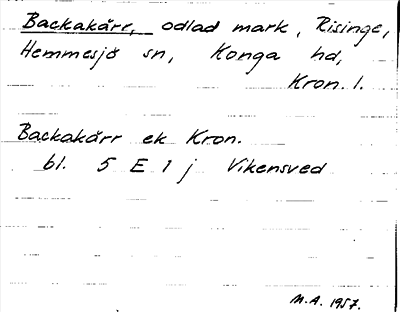 Backakärr, odlad mark, Risinge,
Hemmesjö sn, Konga hd,
Kron. l.
Backakärr ek Kron.
bl. 5 E 1 j Vikensved
M.A. 1957.